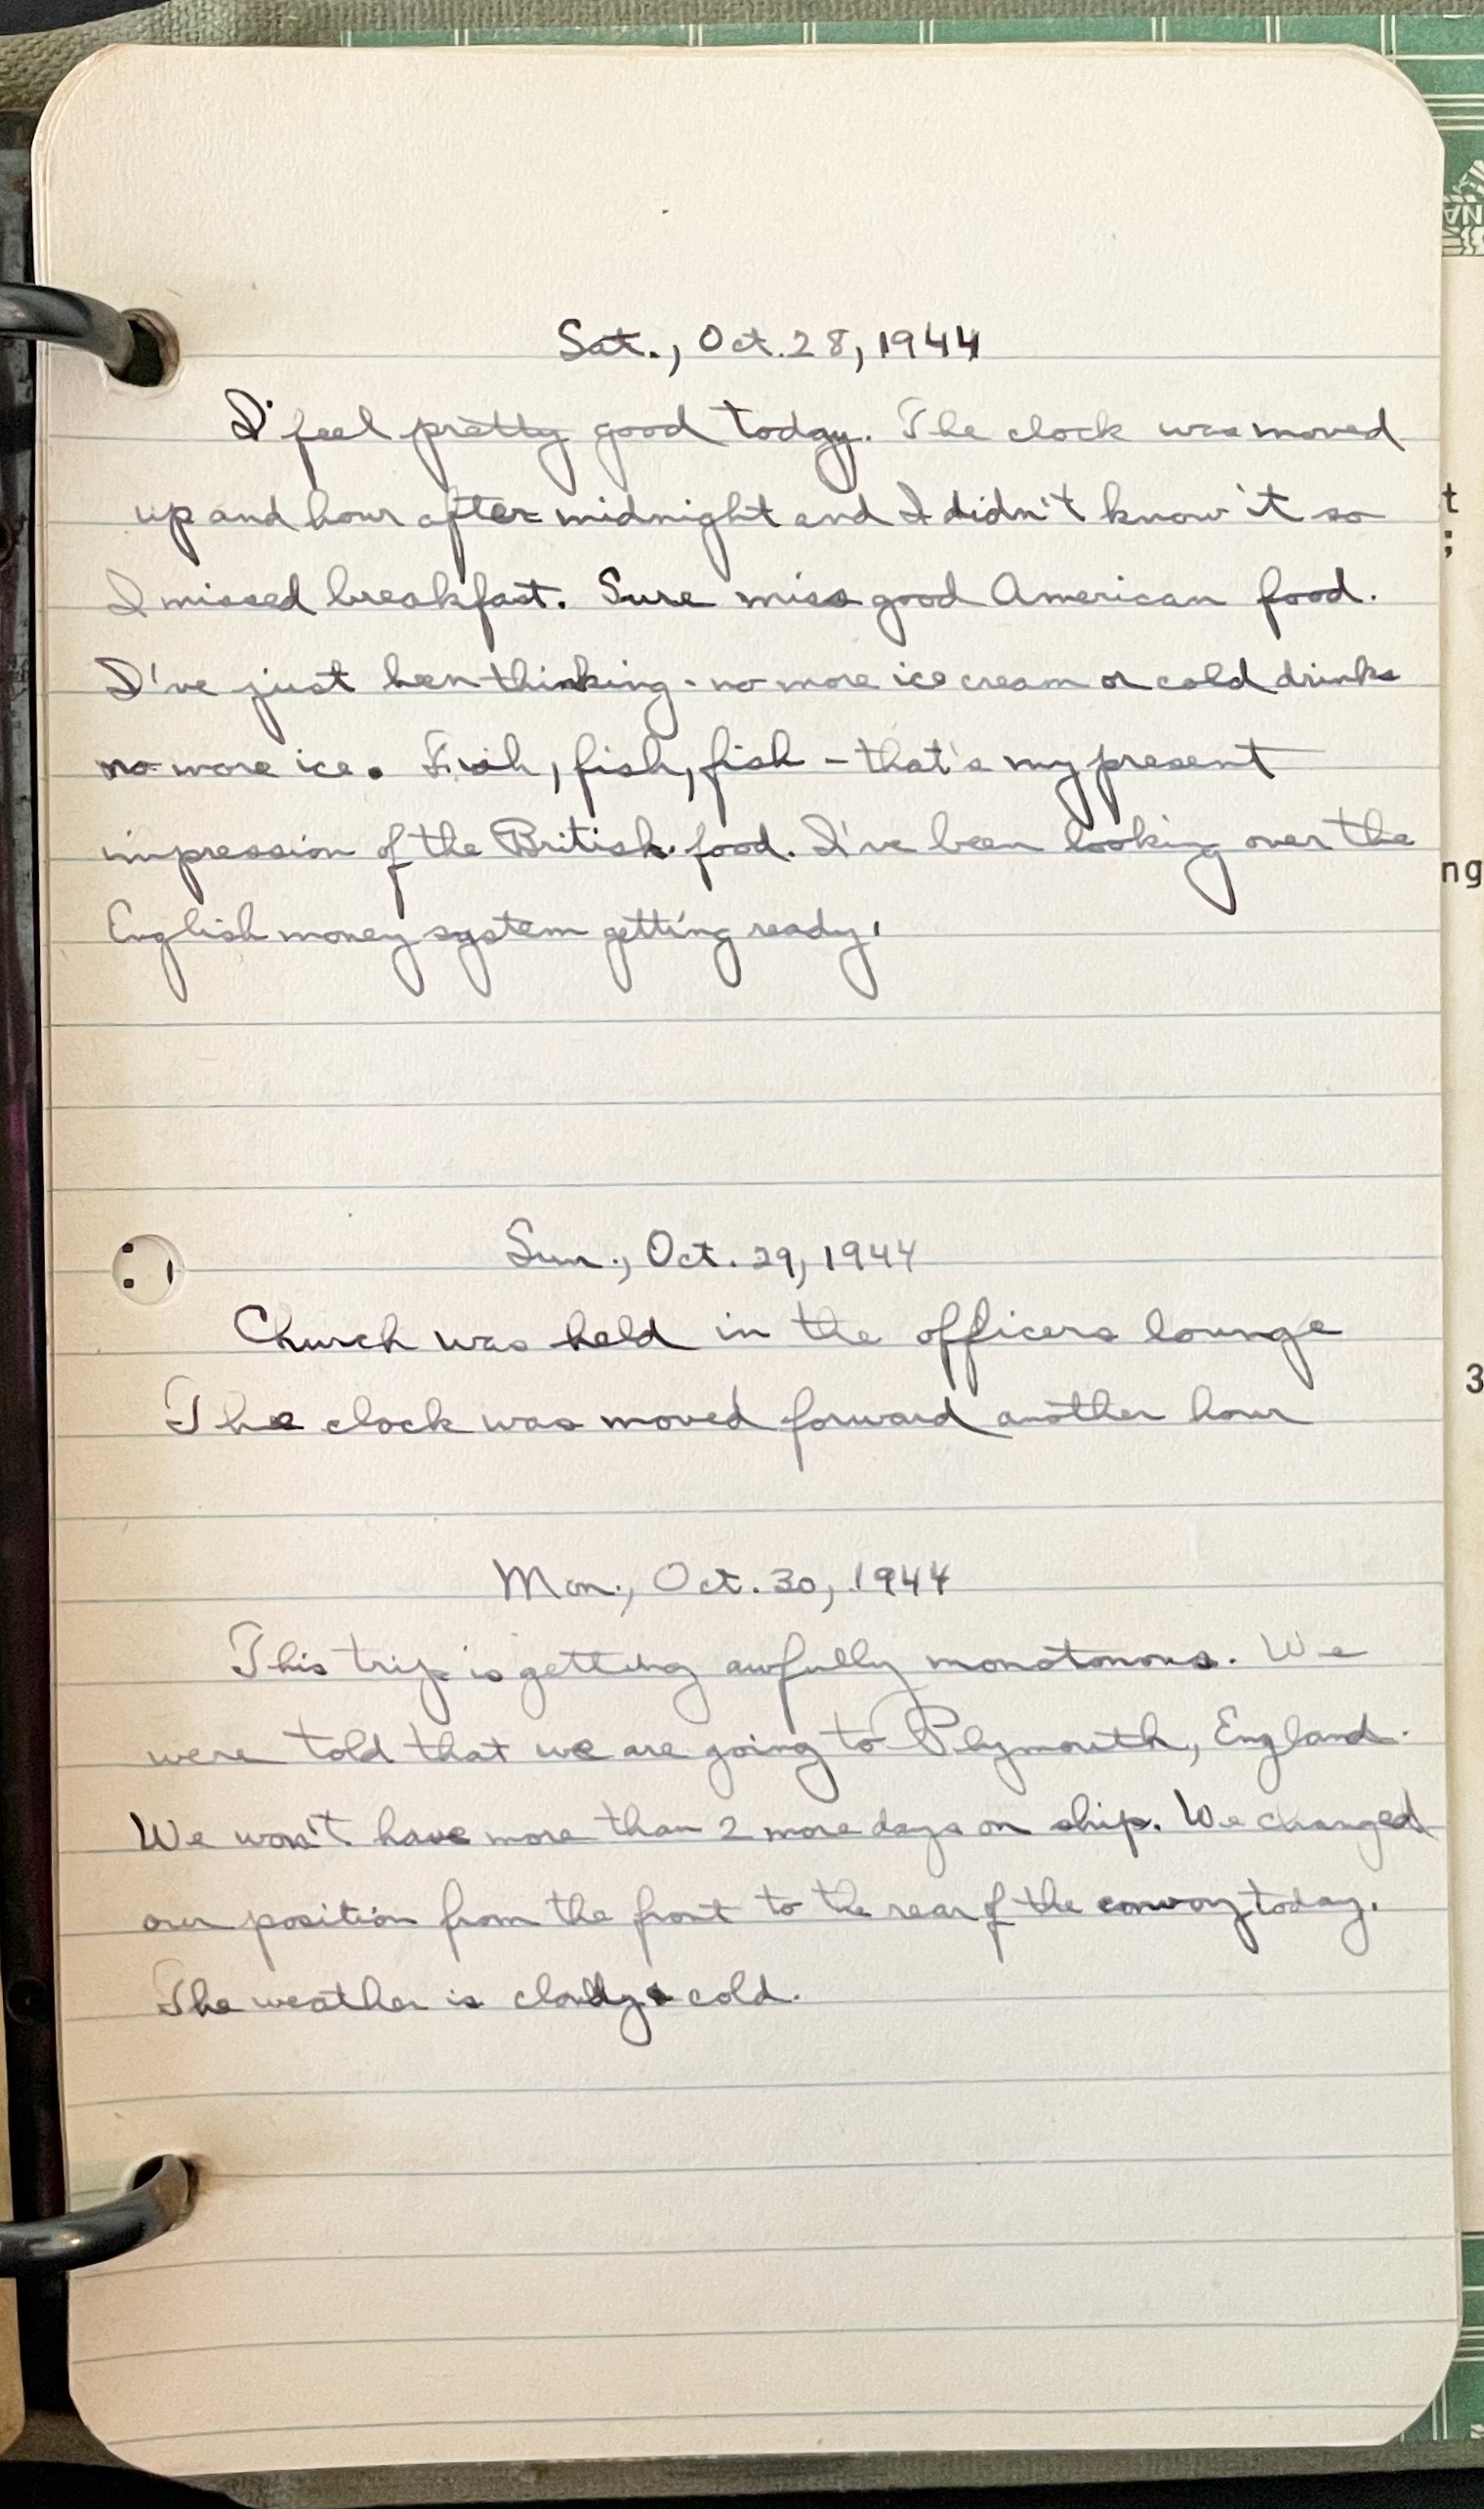 Sat., Oct. 28, 1944
I feel pretty good today. The clock was moved
up and hour after midnight and I didn't know it so
I missed breakfast. Sure miss good American food.
I've just been thinking - no more ice cream or cold drinks
no more ice. Fish, fish, fish - that's my present
impression of the British food. I've been looking over the
English money system getting ready.
Sun., Oct. 29, 1944
Church was held in the officers lounge
The clock was moved forward another hour
Mon., Oct. 30, 1944
This trip is getting awfully monotonous. We
were told that we are going to Plymouth, England.
We won't have more than 2 more days on ship. We changed
our position from the front to the rear of the convoy today.
The weather is cloudy & cold.
t
;
ng
3